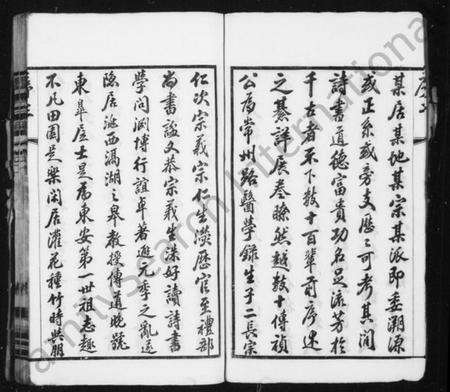 某居某地某宗某派即委溯源
或正系或旁支歷歷可考其間
詩書道德富貴功名足流芳於
千古者不下數十百輩前序述
之綦詳展卷瞭然越數十傳禎
公為常州路醫學錄生子二長宗
仁次宗義宗仁生濙歷官至禮部
尚書諡文恭宗義生洙好讀詩書
學問淵博行誼卓著避元季之亂遂
隱居洮西滆湖之皋教授傳道晚號
東皋居士是為東安第一世祖志趣
不凡田園是樂閑居灌花種竹時與朋